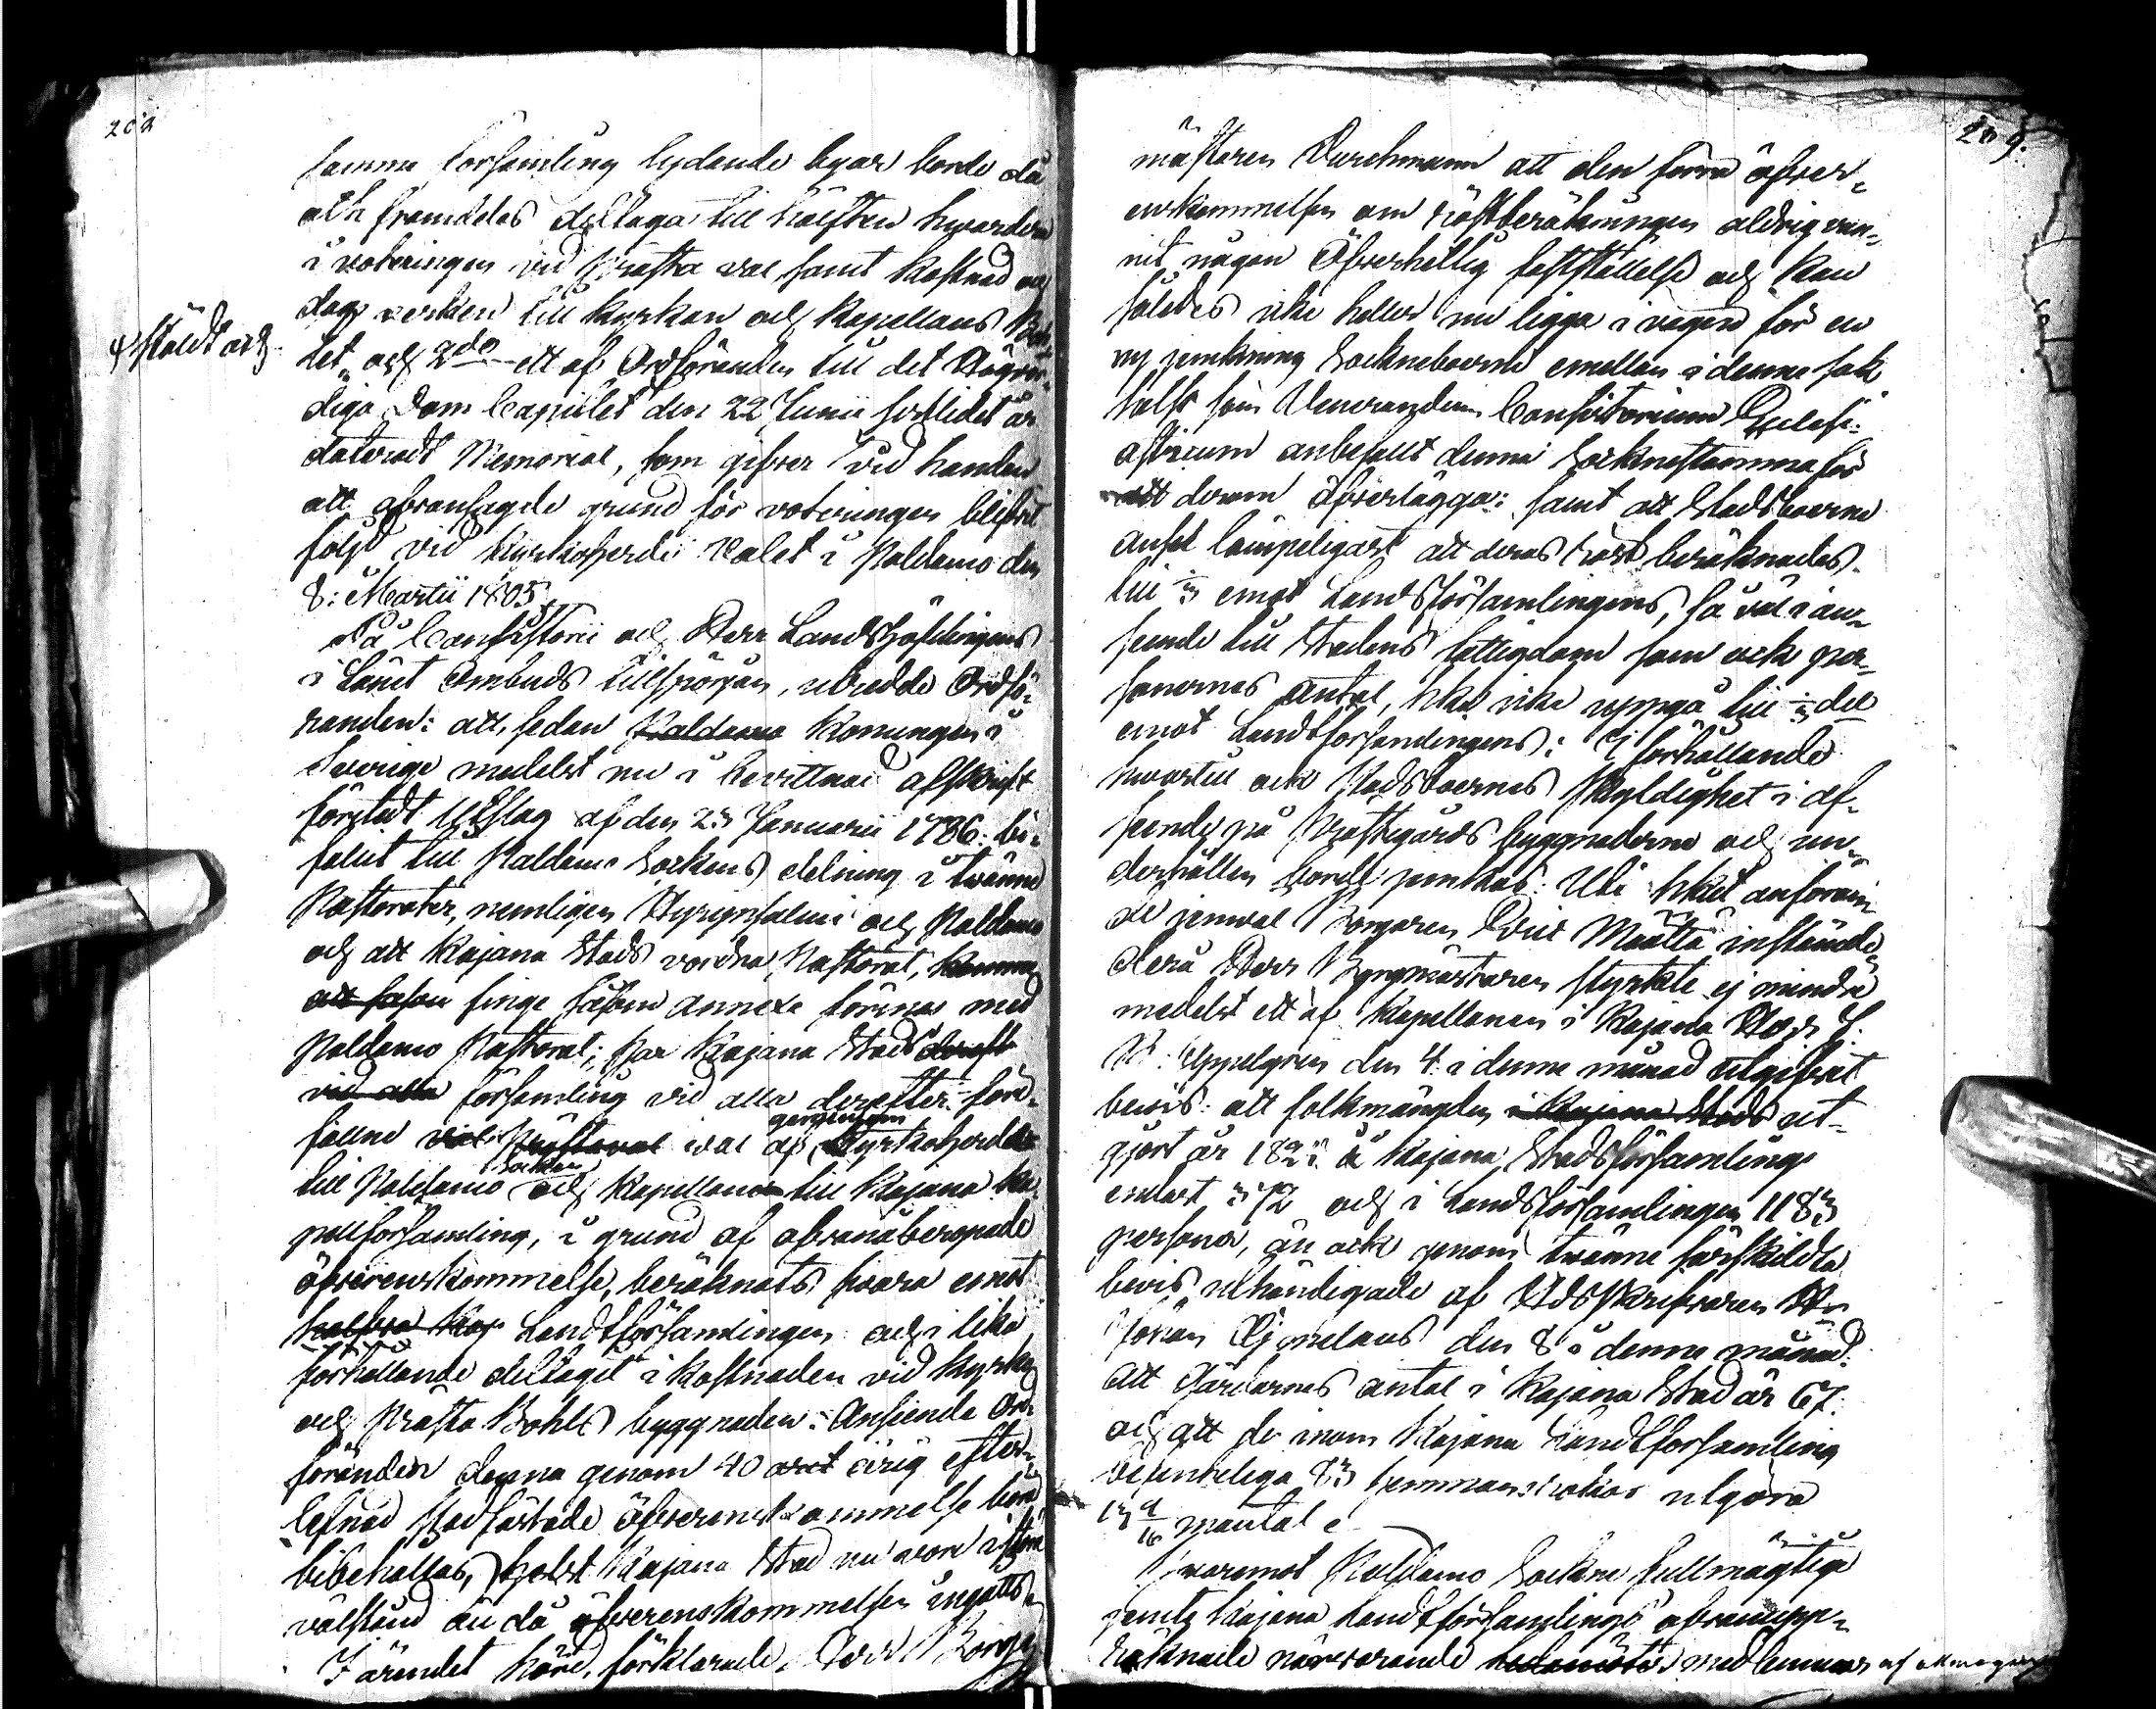 208
samma Församling lydande byar borde då
och framdeles deltaga till hälften hwardera
i voteringen vid Prästa val samt kostnad och
dags verken till kyrkan och kapellans Bo-
ståldt och
let, och 2do ett af Ordföranden till det Högvör-
diga Dom Capitlet den 22 Junii sistlidet år
dateradt Memorial, som gifver vid handen
att ofvansagde grund för voteringen blifvit
följd vid kyrkoherde valet i Paldamo den
8: Martii 1805.
På Consistorii och Herr Landshöfdingens
i Länet Ombuds tillspörjan, utredde Ordfö-
randen: att, sedan Paldamo Konungen i
Sverige medelst nu i bevittnad afskrift
företedt Utslag af den 23 Januarii 1786. bi-
fallit till Paldamo Sockens delning i tvänne
Pastorater, nemligen Hyrynsalmi och Paldamo
och att Kajana Stads vordna Pastorat, komma
att såsom finge såsom annexe förenas med
Paldamo Pastorat; har Kajana Stads dereft
vid alla församling vid alla derefter före-
gemensam
fallne val Prästaval val af Kyrkoherde
Socken
till Paldamo och Kapellan till Kajana Ka-
pellförsamling, i grund af ofvanåberopade
öfverenskommelse, beräknats svara emot
halfva Kap Landtförsamlingen och i lika
förhållande deltagit i kostnaden vid kyrko
och Prästa Bohls byggnaden: Anseende Ord-
föranden denna genom 40 årig efter-
lefnad stadfästade öfverenskommelse böra
bibehållas, helst Kajana Stad nu vore i större
välstånd än då öfverenskommelsen ingåtts.
I ärendet hörd, förklarade Herr Borge
209.
mästaren Durchmann att den förra öfver-
enskommelsen om röstberäkningen aldrig vun-
nit någon Öfverhetlig fastställelse och kan
således icke heller nu ligga i vägen för en
ny jemkning Sockneboerne emellan i denna sak
helst som Venerandum Consistorium Ecclesi-
asticum anbefallt denna Socknestämma för
att derom öfverlägga: samt att Stadsboerne
anse lämpeligast att deras röst beräknades
till 1/3 emot Landsförsamlingens, så väl i an-
seende till Stadens fattigdom som ock per-
sonernes antal, hkn icke uppgå till 1/3 del
emot Landtförsamlingens: I förhållande
hwartill ock Stadsboernes skyldighet i af-
seende på Prästegårds byggnaderne och un-
derhållen borde jemkas. Uti hket anföran-
de jemväl Borgaren Määttä instämde
dera Herr Borgmästaren styrkte ej mindre
medelst ett af Kapellanen i Kajana Herr J.
W. Appelgren den 4. i denna månad utgifvet
bevis: att folkmängden i Kajana Stads ut-
gjort år 182 i Kajana Stadsförsamling
endast 372 och i Landsförsamlingen 1183
personer, än ock genom tvänne särskildta
bevis, uthändigade af HdsSkrifvaren Hr
Johan Cajanelaus den 8 i denna månad:
att Gårdarnes antal i Kajana Stad är 67.
och att de inom Kajana Landtförsamling
befintelega 83 hemmans rökar utgöra
13 9/16 mantal.
Hvaremot Paldamo Sockne fullmägtige
jemte Kajana Landtförsamlings ofvanupp-
räknade närvarande ledamöter medlemmar af